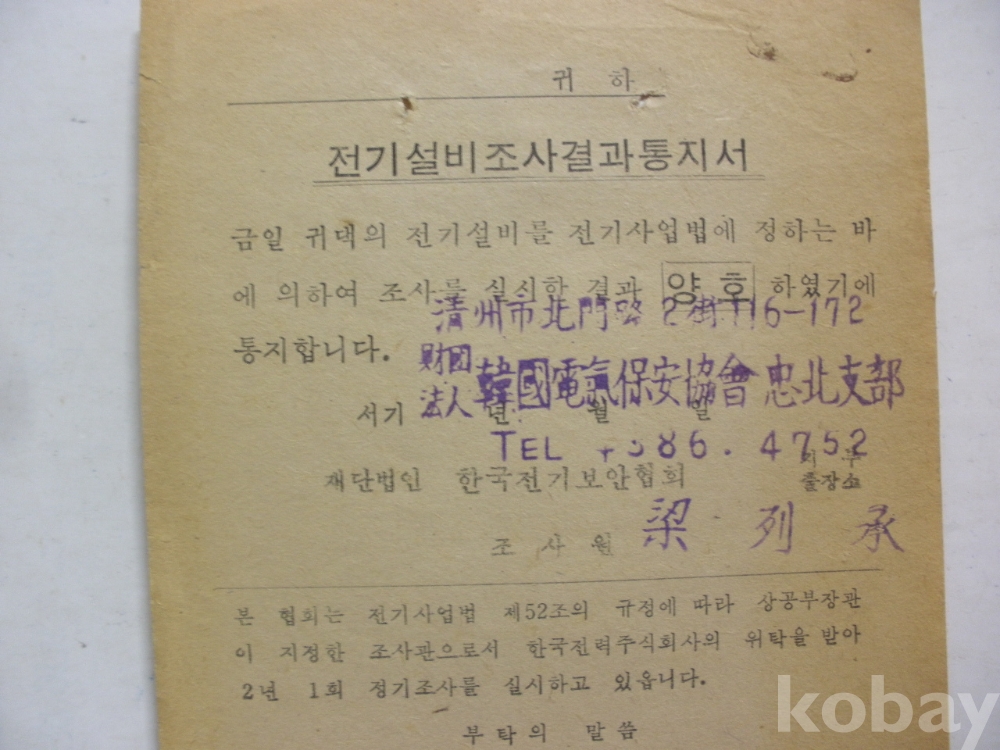 귀 하
전기설비조사결과통지서
금일 귀댁의 전기설비를 전기사업법에 정하는 바
에 의하여 조사를 실시한 결과 양 호 하였기에
淸州市北門路 2街 116-172
통지합니다.
財團
法人 韓國電氣保安協會 忠北支部
서기 년 월 일
TEL 4752
재단법인 한국전기보안협회 지 부
출장소
조 사 원 梁 列 承
본 협회는 전기사업법 제52조의 규정에 따라 상공부장관
이 지정한 조사관으로서 한국전력주식회사의 위탁을 받아
2년 1회 정기조사를 실시하고 있읍니다.
부 탁 의 말 씀
kobay